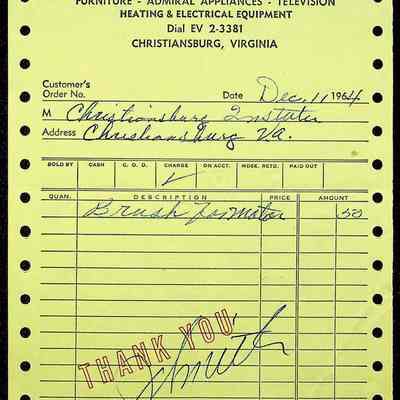 FURNITURE - ADMIRAL APPLIANCES - TELEVISION
HEATING & ELECTRICAL EQUIPMENT
Dial EV 2-3381
CHRISTIANSBURG, VIRGINIA
Customer's
Order No. Date Dec. 11 1964
M Christiansburg Institute
Address Christiansburg Va.
SOLD BY CASH C. O. D. CHARGE ON ACCT. MDSE. RETD. PAID OUT
✓
QUAN. DESCRIPTION PRICE AMOUNT
Brush for Motor 50
THANK YOU